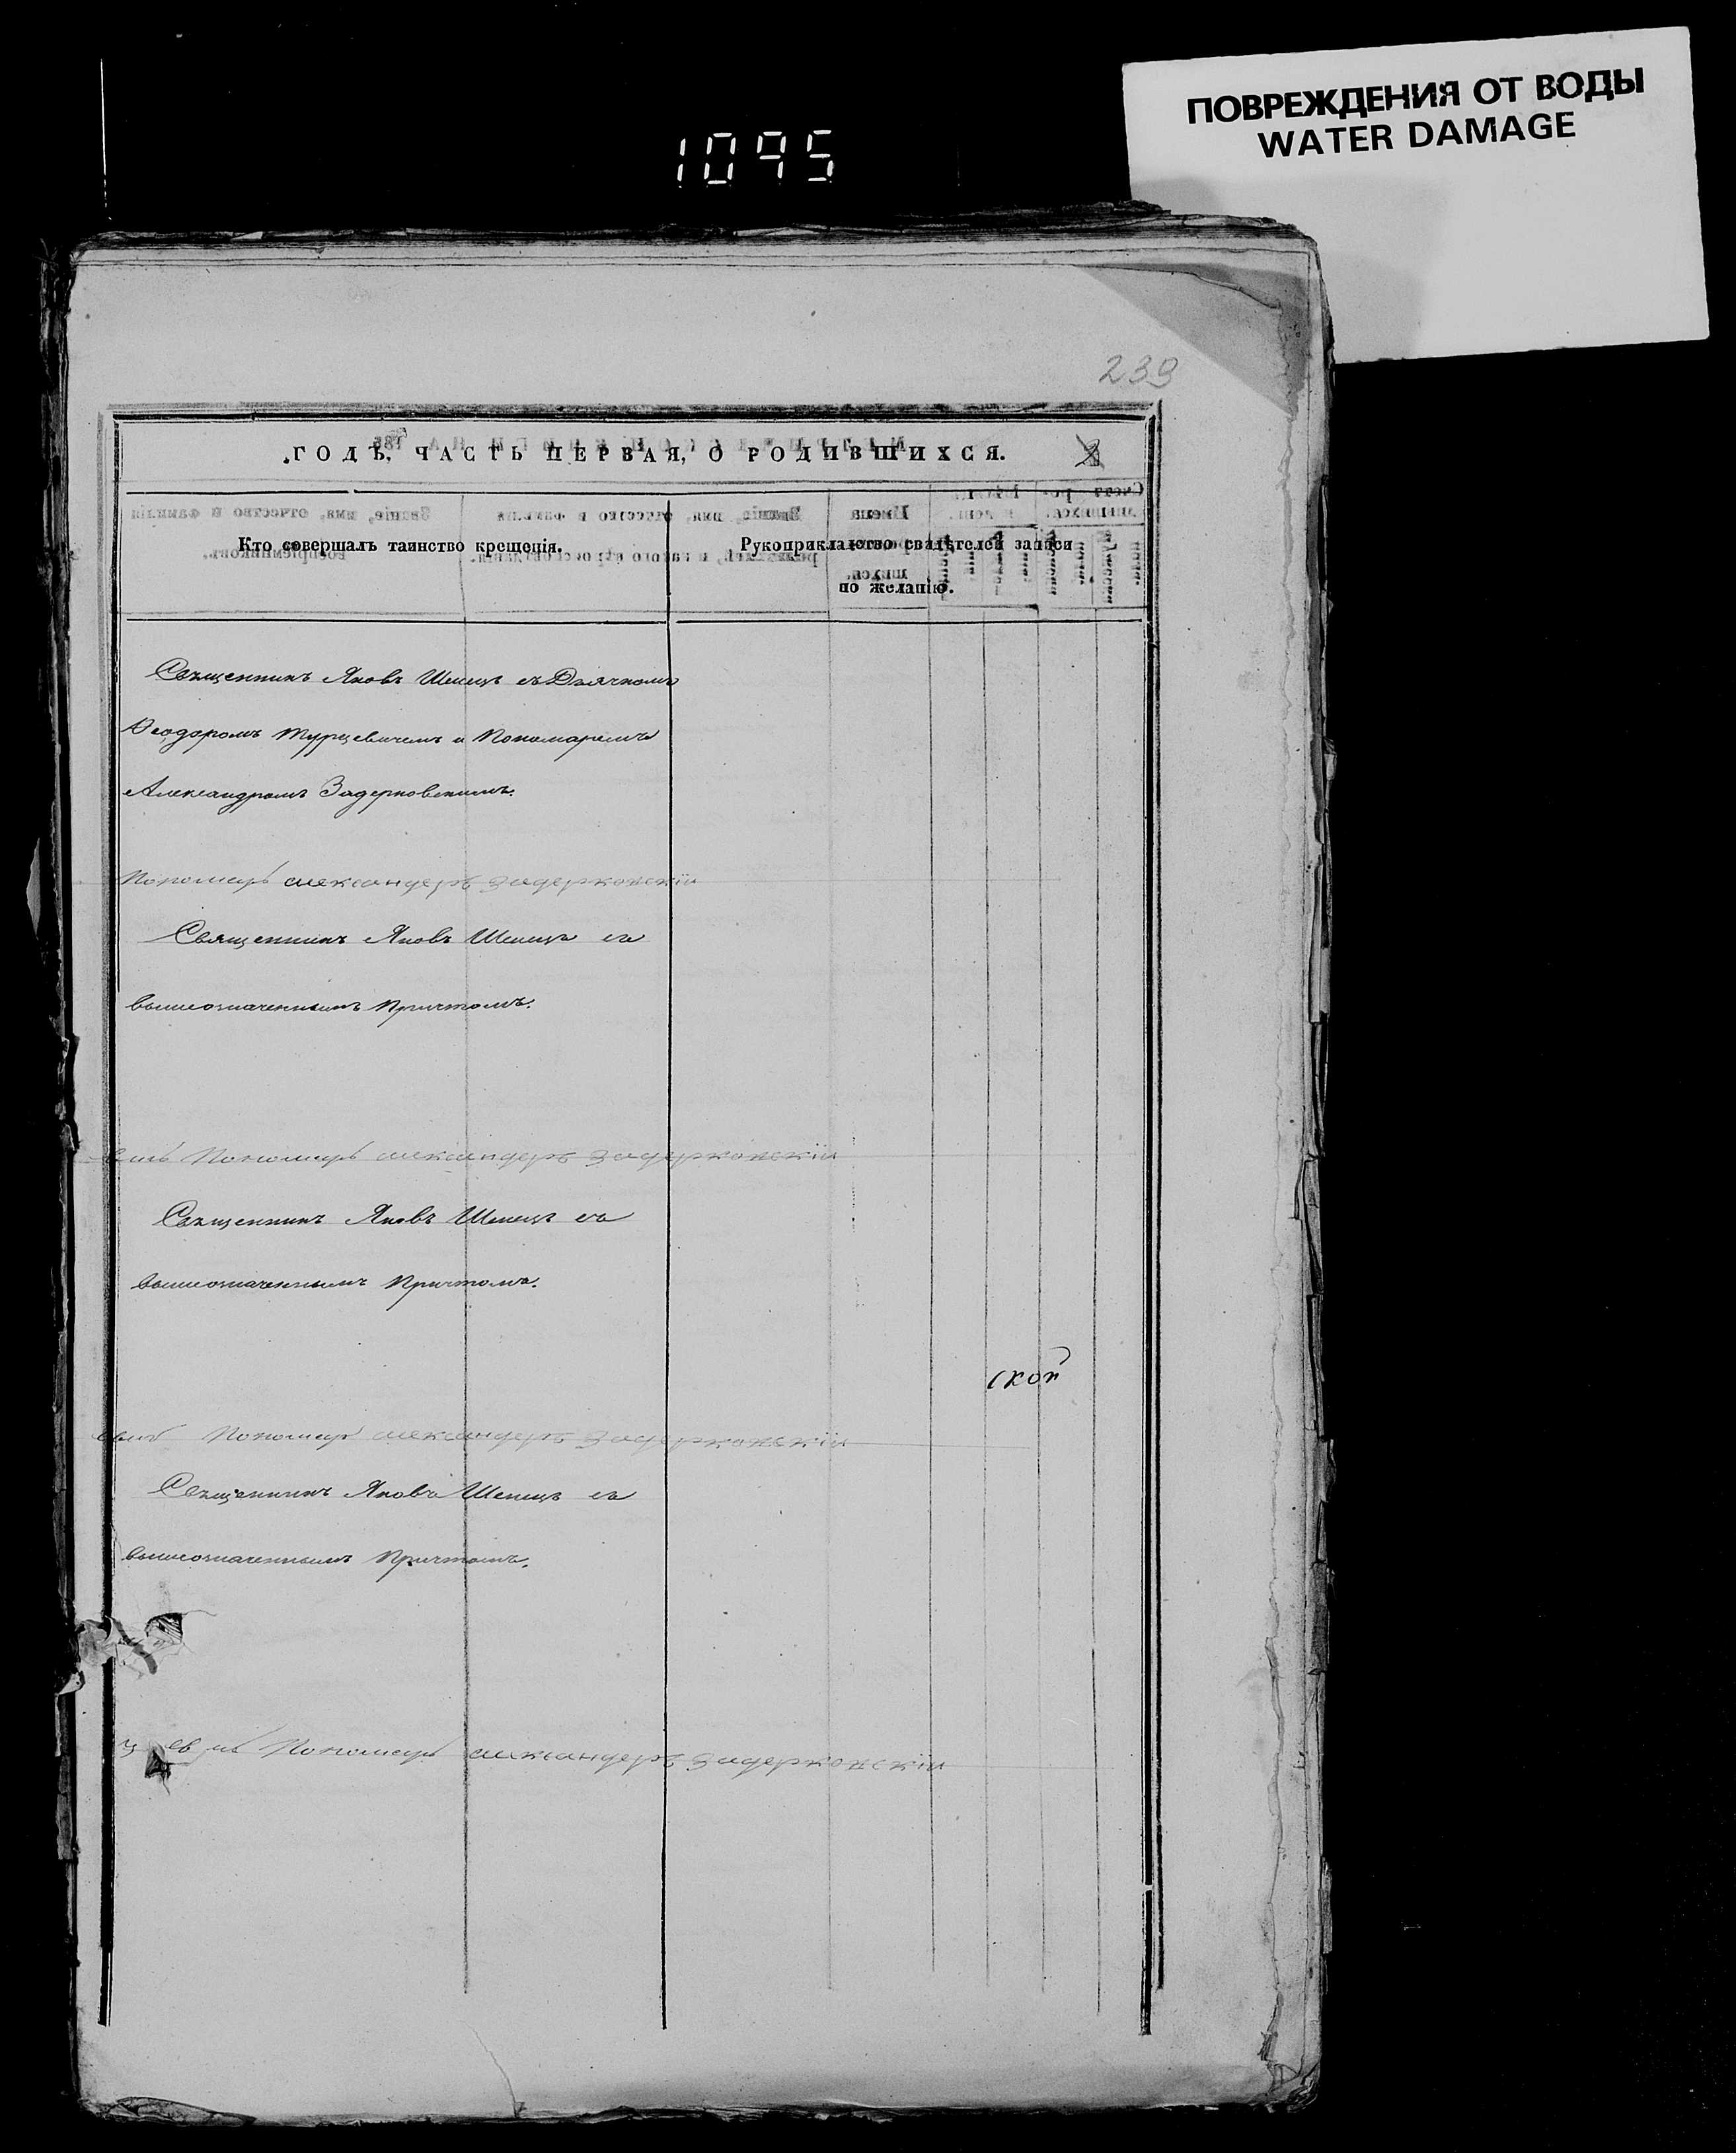 ПОВРЕЖДЕНИЯ ОТ ВОДЫ
WATER DAMAGE
1095
239
ГОДЪ, ЧАСТЬ ПЕРВАЯ, О РОДИВШИХСЯ.
Кто совершалъ таинство крещенія.
Рукоприкладство свидѣтелей записи
по желанію.
Священникъ Яковъ Шепецъ съ Дьячкомъ
Ѳеодоромъ Турцевичемъ и Пономаремъ
Александромъ Задерковскимъ.
Пономарь александеръ Задерковскіи
Священникъ Яковъ Шепецъ съ
вышеозначеннымъ Причтомъ.
Пономарь александеръ Задерковскіи
Священникъ Яковъ Шепецъ съ
вышеозначеннымъ Причтомъ.
ской
Пономарь александеръ Задерковскіи
Священникъ Яковъ Шепецъ съ
вышеозначеннымъ Причтомъ.
Пономарь александеръ Задерковскіи